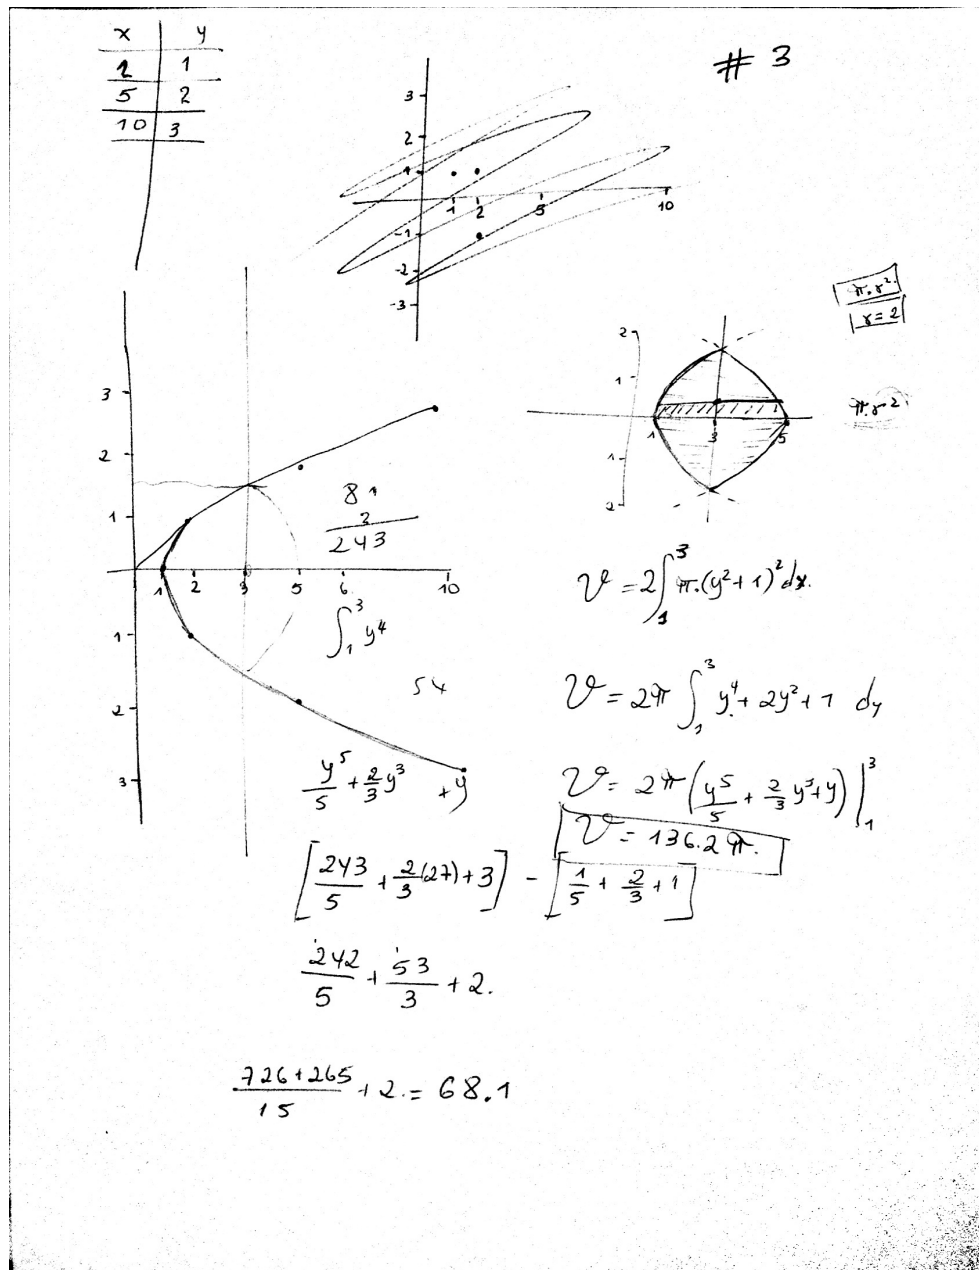 # 3
x y
2 1
5 2
10 3
3
2
1
1 2 5 10
-1
-2
-3
π.r².
r=2
2
1
1 3 5
1
2
π.r²
3
2
1
1 2 3 5 6 10
1
2
3
81
3
243
∫₁³ y⁴
54
V = 2∫₁³ π.(y²+1)² dx.
V = 2π ∫₁³ y⁴ + 2y² + 1 dy
V = 2π (y⁵/5 + 2/3 y³ + y) |₁³
V = 136.2 π.
y⁵/5 + 2/3 y³ + y
[243/5 + 2/3 (27) + 3] - [1/5 + 2/3 + 1]
242/5 + 53/3 + 2.
726+265/15 + 2. = 68.1